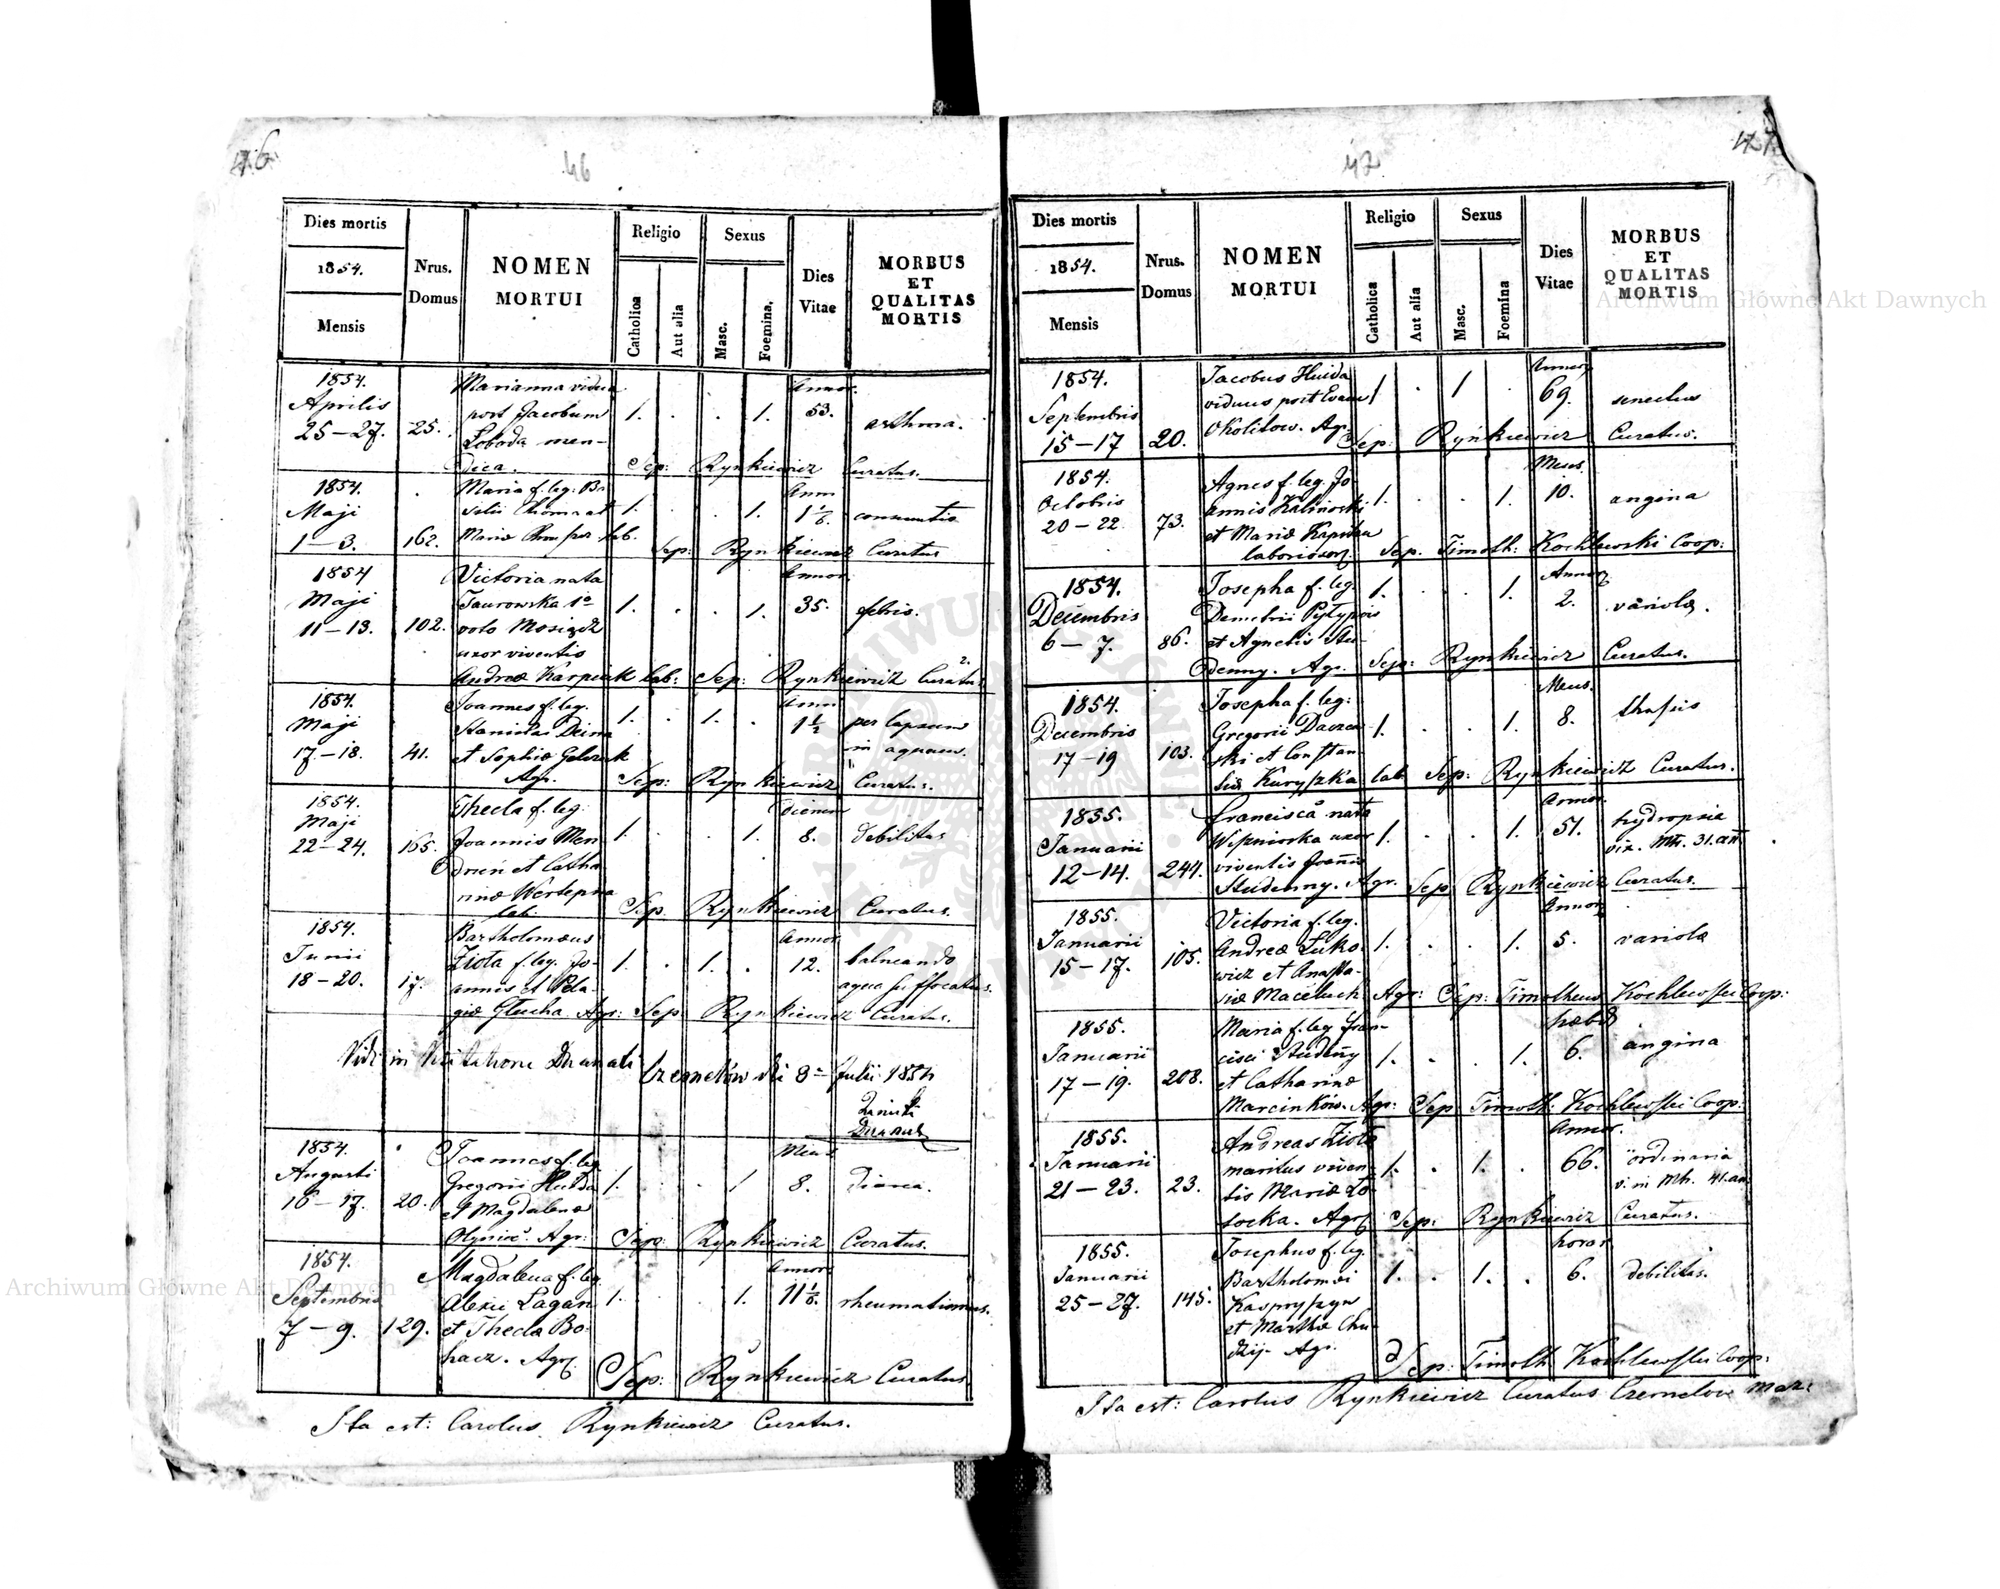 46
46
Dies mortis
1854.
Mensis
Nrus.
Domus
NOMEN
MORTUI
Religio
Catholica
Aut alia
Sexus
Masc.
Foemina.
Dies
Vitae
MORBUS
ET
QUALITAS
MORTIS
1854.
Aprilis
25–27.
25.
Marianna vidua
post Jacobum
Łoboda men-
dica.
1. . . 1.
Annor.
53.
asthma.
Sep: Rynkiewicz Curatus.
1854.
Maji
1–3.
162.
Maria f. leg:
1. . . 1.
Ann
Sep: Rynkiewicz Curatus
1854
Maji
11–13.
102.
Victoria nata
Taurowska 1o
voto
uxor viventis
Andreæ Karpiak lab:
1. . . 1.
Annor.
35.
febris.
Sep: Rynkiewicz Curatus
1854.
Maji
17–18.
41.
Joannes f. leg.
Stanislai
et Sophiæ
Agr.
1. . 1. .
Ann
1 1/2
per lapsum
in aquam.
Sep: Rynkiewicz Curatus.
1854.
Maji
22–24.
165.
Thecla f. leg:
Joannis Men
druń et Catha
rinæ Wertepna
lab.
1. . . 1.
Dierum
8.
debilitas
Sep. Rynkiewicz Curatus.
1854.
Junii
18–20.
17.
Bartholomæus
Ziola f. leg. Jo-
annis et Pela-
giæ Głucha Agr:
1. . 1. .
Annor
12.
balneando
aqua suffocatus.
Sep: Rynkiewicz Curatus.
Vidi in Visitatione Decanali Czernelów die 8a Julii 1854
1854.
Augusti
16–17.
20.
Joannes f. leg.
Gregorii Huida
et Magdalenæ
Agr:
1. . 1 .
Mens
8.
Sep: Rynkiewicz Curatus.
1854.
Septembris
7–9.
129.
Magdalena f. leg.
Alexii Łagan
et Theclæ Bo-
hacz. Agr.
1. . . 1.
Annor
rheumatismus.
Sep: Rynkiewicz Curatus
Ita est: Carolus Rynkiewicz Curatus.
47
47
Dies mortis
1854.
Mensis
Nrus.
Domus
NOMEN
MORTUI
Religio
Catholica
Aut alia
Sexus
Masc.
Foemina
Dies
Vitae
MORBUS
ET
QUALITAS
MORTIS
1854.
Septembris
15–17
20.
Jacobus Huida
viduus post Evam
Okolitow. Agr.
1 . 1 .
Annor.
69.
senectus
Sep: Rynkiewicz Curatus.
1854.
Octobris
20–22.
73.
Agnes f. leg. Jo
annis Kalinoski
et Mariæ
1. . . 1.
Mens.
10.
angina
Sep. Timoth: Kochlewski Coop:
1854.
Decembris
6–7.
86.
Josepha f. leg
Demetrii
et Agnetis Stu-
denny. Agr.
1. . . 1.
Annor.
2.
variolæ.
Sep: Rynkiewicz Curatus.
1854.
Decembris
17–19
103.
Josepha f. leg:
Gregorii
ski et Constan-
tiæ Kuryszka lab
1. . . 1.
Mens.
8.
Sep: Rynkiewicz Curatus.
1855.
Januarii
12–14.
244.
Francisca nata
uxor
viventis Joannis
Studenny. Agr.
1. . . 1.
Annor.
51.
hydropsia
vix. Mtr. 31. an.
Sep Rynkiewicz Curatus.
1855.
Januarii
15–17.
105.
Victoria f. leg.
Andreæ Łuko-
wicz et Anasta-
siæ Maceluch Agr:
1. . . 1.
Annor
5.
variolæ
Sep: Timotheus Kochlewski Coop:
1855.
Januarii
17–19.
208.
Maria f. leg Fran-
cisci Studenny
et Catharinæ
Marcinków. Agr:
1. . . 1.
hebd
6.
angina
Sep Timoth: Kochlewski Coop:
1855.
Januarii
21–23.
23.
Andreas Ziola
maritus viven-
tis Mariæ Ło-
tocka. Agr.
1. . 1. .
Annor.
66.
ordinaria
v. in Mtr. 41. an.
Sep: Rynkiewicz Curatus.
1855.
Januarii
25–27.
145.
Josephus f. leg.
Bartholomæi
Kaspryszyn
et Marthæ Chu-
dzij. Agr.
1. . 1. .
horar
6.
debilitas.
Sep: Timoth Kochlewski Coop:
Ita est: Carolus Rynkiewicz Curatus
Archiwum Główne Akt Dawnych
Archiwum Główne Akt Dawnych